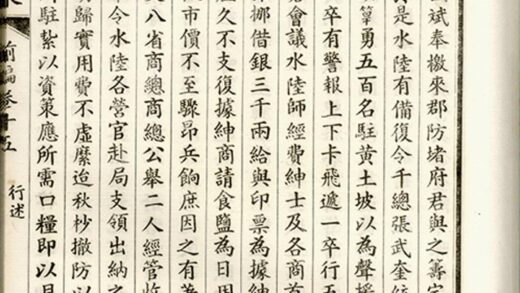 國斌奉檄來郡防堵府君與之籌
行是水陸有備復令千總張武奎
篁勇五百名駐黃土坡以為聲援
卒有警報上下卡飛遞一卒行五
會議水陸師經費紳士及各商
挪借銀三千兩給與印票為據紳
久不支復據紳商請食鹽為日
市價不至驟昂兵餉庶因之有
八省商總商總公舉二人經管收
令水陸各營官赴局支領出納之
歸實用費不虛糜迨秋杪撤防以
駐紮以資策應所需口糧即以
前編卷十五
行述